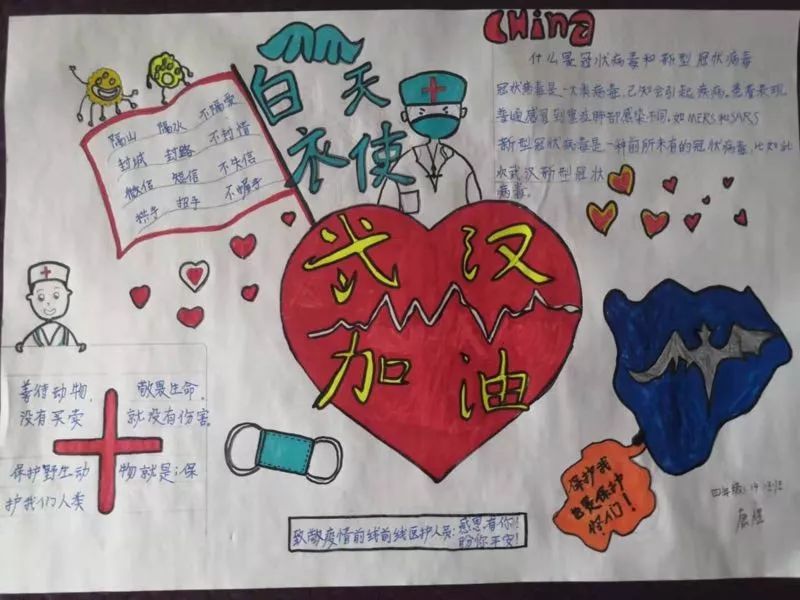 CHINA
什么是冠状病毒和新型冠状病毒
冠状病毒是一大类病毒,已知会引起疾病.患者表现
普通感冒到重症肺部感染不同,如MERS和SARS
新型冠状病毒是一种前所未有的冠状病毒,比如此
次武汉新型冠状
病毒.
白天
衣使
隔山 隔水 不隔爱
封城 封路 不封情
微信 短信 不失信
拱手 招手 不握手
武汉
加油
善待动物, 敬畏生命,
没有买卖 就没有伤害.
保护野生动物就是:保
护我们人类
保护我
也是保护
你们!
四年级:
致敬疫情前线前线医护人员:感恩有你!
盼你平安!